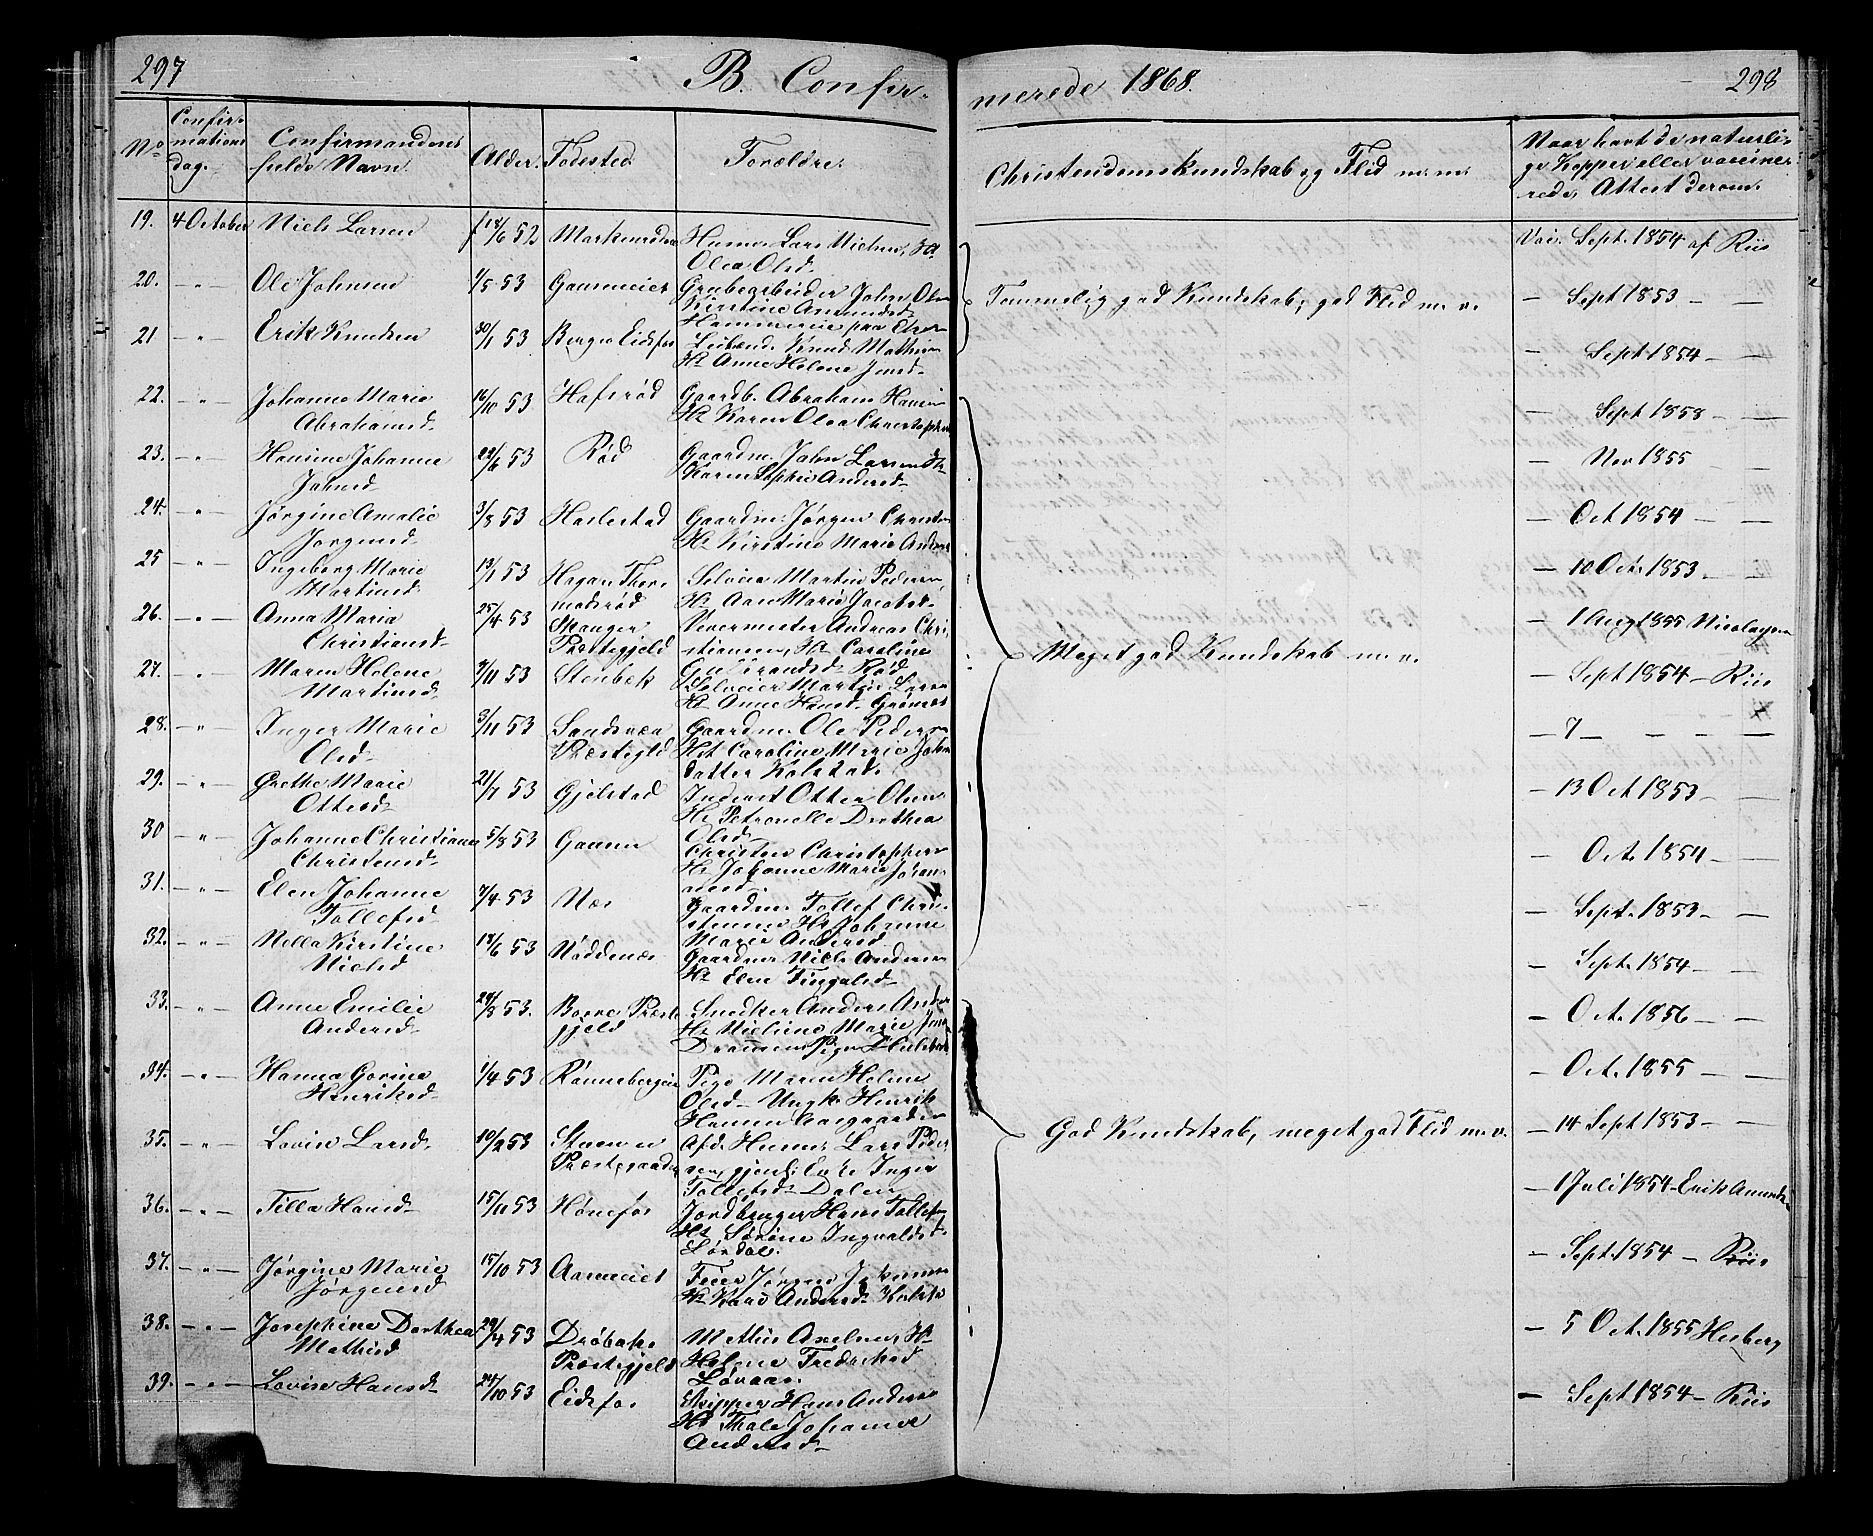 297
B. Confir-
merede 1868.
298
No
Confir-
mations
dag.
Confirmandens
fulde Navn.
Alder.
Fødested
Forældre.
Christendomskundskab og Flid m.m.
Naar havt de naturli-
ge Kopper eller vaccine-
rede, Attest derom.
19. 4 October Niels Larsen 18/6 52 Huusm. Lars Nielsen, H.
Olea Olsd.
Vac. Sept. 1854 af Riis
20. - " - Ole Johnsen 1/5 53 Gaaseneiet Grubearbeider John Olsen
Kirstine Amundsd.
Temmelig god Kundskab, god Flid m.v.
— Sept 1853 — —
21. - " - Erik Knudsen 30/1 53 Berger Eidsfos
Knud Mathisen
Hr Anne Helene Jensd.
— Sept 1854 — —
22. - " - Johanne Marie
Abrahamsd. 16/10 53 Hafsrød Gaardb. Abraham Hansen
Hr Karen Olea Christophersd
— Sept 1858 — —
23. - " - Hansine Johanne
Johnsd 22/6 53 Rød Gaardm. John Larsen Hr
Karen Sophie Andersd.
— Nov 1855 — —
24. - " - Jørgine Amalie
Jørgensd 3/8 53 Haslestad Gaardm. Jørgen Christen
Hr Kirstine Marie Anders
— Oct 1854 — —
25 - " - Ingeborg Marie
Martinsd 13/1 53 Hagan Thore
modsrød Selveier Martin Pedersen
Hr Ane Marie Jacobsd.
— 10 Oct. 1853 — —
26. - " - Anna Maria
Christiansd 25/4 53 Stanger
Præstegjeld Andreas Chri
stiansen, Hr Caroline
Gulbrandsd. Rød
— 1 Aug 1855 Nicolaysen
Meget god Kundskab m.v.
27. - " - Maren Helene
Martinsd 7/11 53 Stenbæk Selveier Martin Larsen
Hr Anne Hansd.
— Sept 1854 — Riis
28. - " - Inger Marie
Olsd 3/11 53 Sandsvær
Præstegjld Gaardm. Ole Pedersen
Hst Caroline Marie Johns
datter Kolstad.
— 7 — — — — —
29. - " - Grethe Marie
Ottersd 21/7 53 Gjelstad Inderst Otter Olsen
Hr Petronelle Dorthea
Olsd
— 13 Oct 1853 — —
30 - " - Johanne Christiane
Christensd. 5/8 53 Gaasen Christen Christophersen
Hr Johanne Marie Jørgen
sensd
— Oct. 1854 — —
31. - " - Elen Johanne
Tollefsd 7/4 53 Næs Gaardm. Tollef Chri
stensen Hr Johanne
Marie Andersd
— Sept. 1853 — —
32. - " - Nella Kirstine
Nielsd 18/6 53 Nøddenæs Gaardm Niels Andersen
Hr Elen Tingalsd.
— Sept. 1854 — —
33. - " - Anne Emilie
Andersd. 28/8 53. Borre Præste
gjeld Snedker Anders Anders
Hr Nieline Marie
Drammen
— Oct. 1856 — —
34. - " - Hanna Gorine
Henriksd 1/4 53 Rønnebergeie Pige Maren Helene
Olsd — Ungk. Henrik
Hansen Aasgaarden
— Oct. 1855 — —
35. - " - Lovise Larsd. 10/2 53
Præstegaarden Afd. Huusm. Lars Peder
sen, gjenl. Enke Inger
Tollefsd Dalen
God Kundskab, meget god Flid m.v.
— 14 Sept 1853 — —
36. - " - Tilla Hansd. 15/11 53 Hønefos Jordbruger Hans Tollefsen
Hr Sørine Ingvaldsd.
Lørdal.
— 1 Juli 1854 — Erik Amunds
37. - " - Jørgine Marie
Jørgensd 15/10 53 Aaseneiet Feier Jørgen
Hr Kari Andersd.
— Sept. 1854 — Riis
38. - " - Josephine Dorthea
Mathisd 29/4 53 Drøbaks
Præstegjeld Mathis Axelsen, Hr
Helene Fredriksd
Løvaas.
— 5 Oct. 1855 Hesberg
39. - " - Lovise Hansd. 24/10 53 Eidsfos Skipper Hans Anders
Hr Thale Johanne
Andersd.
— Sept 1854 — Riis